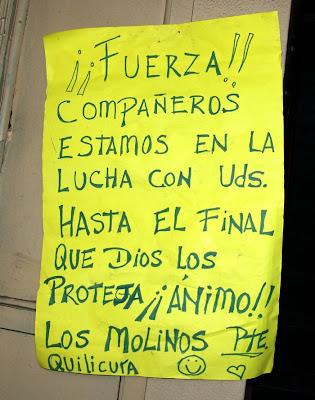 ¡¡FUERZA!!
COMPAÑEROS
ESTAMOS EN LA
LUCHA CON Uds.
HASTA EL FINAL
QUE DIOS LOS
PROTEJA ¡¡ÁNIMO!!
LOS MOLINOS Pte.
QUILICURA